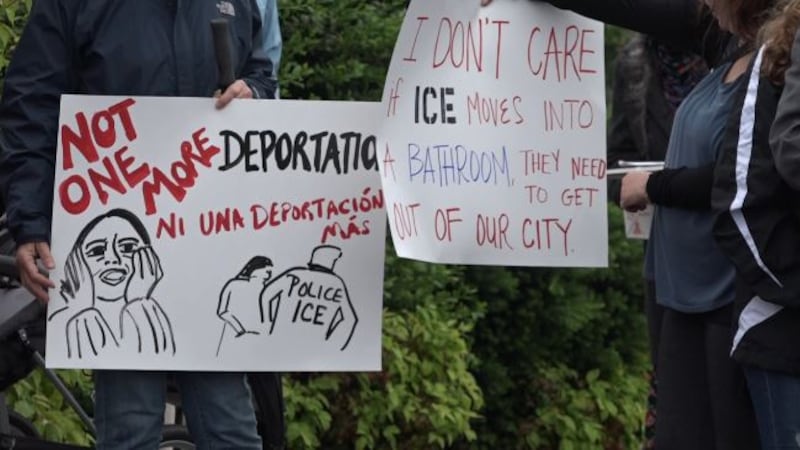 NOT
ONE
MORE DEPORTATIO
NI UNA DEPORTACIÓN
MÁS
POLICE
ICE
I DON'T CARE
if ICE MOVES INTO
A BATHROOM, THEY NEED
TO GET
OUT OF OUR CITY.